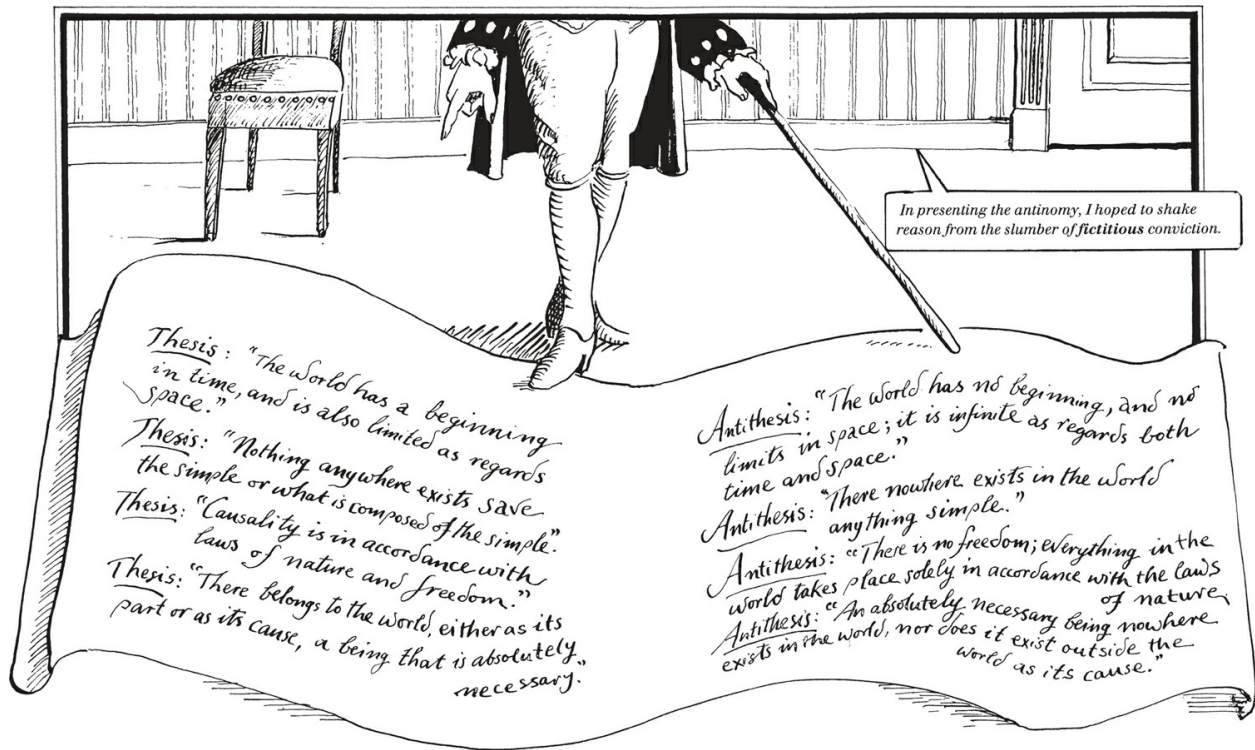 In presenting the antinomy, I hoped to shake
reason from the slumber of fictitious conviction.
Thesis: "The world has a beginning
in time, and is also limited as regards
space."
Thesis: "Nothing anywhere exists save
the simple or what is composed of the simple."
Thesis: "Causality is in accordance with
laws of nature and freedom."
Thesis: "There belongs to the world, either as its
part or as its cause, a being that is absolutely
necessary."
Antithesis: "The world has no beginning, and no
limits in space; it is infinite as regards both
time and space."
Antithesis: "There nowhere exists in the world
anything simple."
Antithesis: "There is no freedom; everything in the
world takes place solely in accordance with the laws
of nature,
Antithesis: "An absolutely necessary being nowhere
exists in the world, nor does it exist outside the
world as its cause."